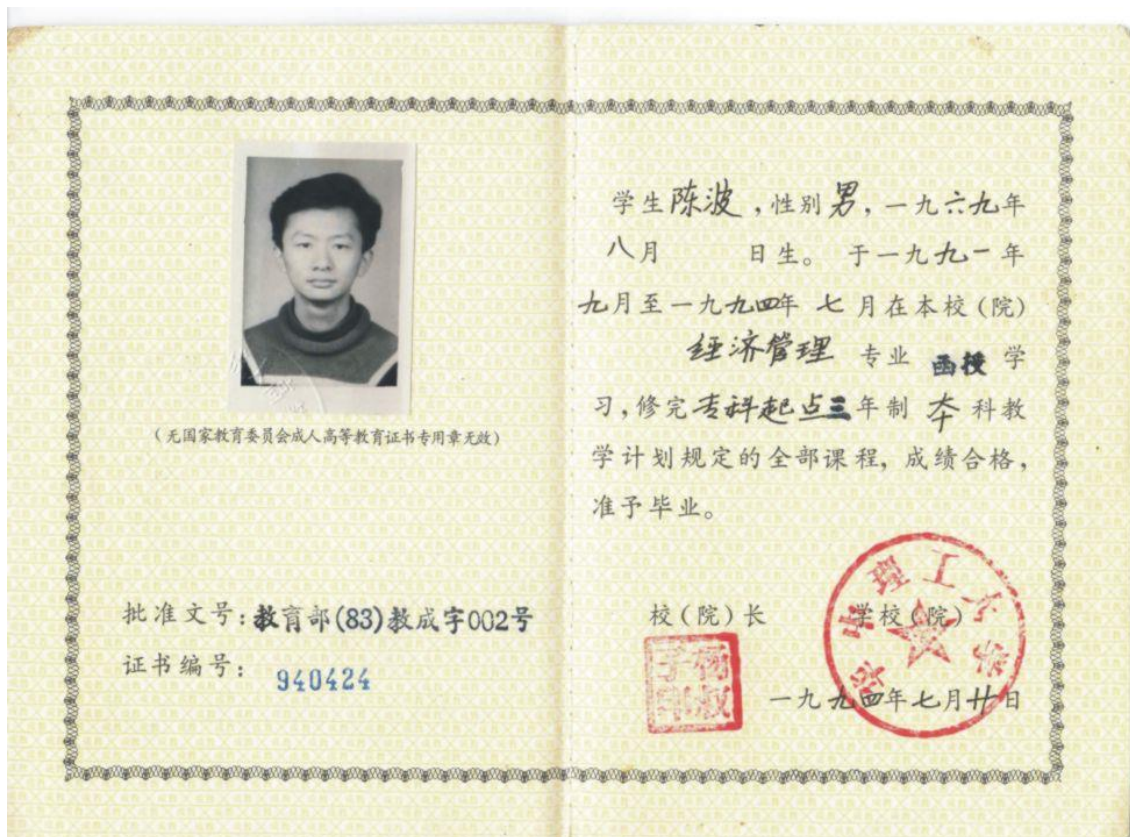 (无国家教育委员会成人高等教育证书专用章无效)
批准文号:教育部(83)教成字002号
证书编号:940424
学生陈波,性别男,一九六九年
八月 日生。于一九九一年
九月至一九九四年七月在本校(院)
经济管理 专业 函授 学
习,修完专科起点三年制 本 科教
学计划规定的全部课程,成绩合格,
准予毕业。
校(院)长 学校(院)
杨叔子印
华中理工大学
一九九四年七月廿日